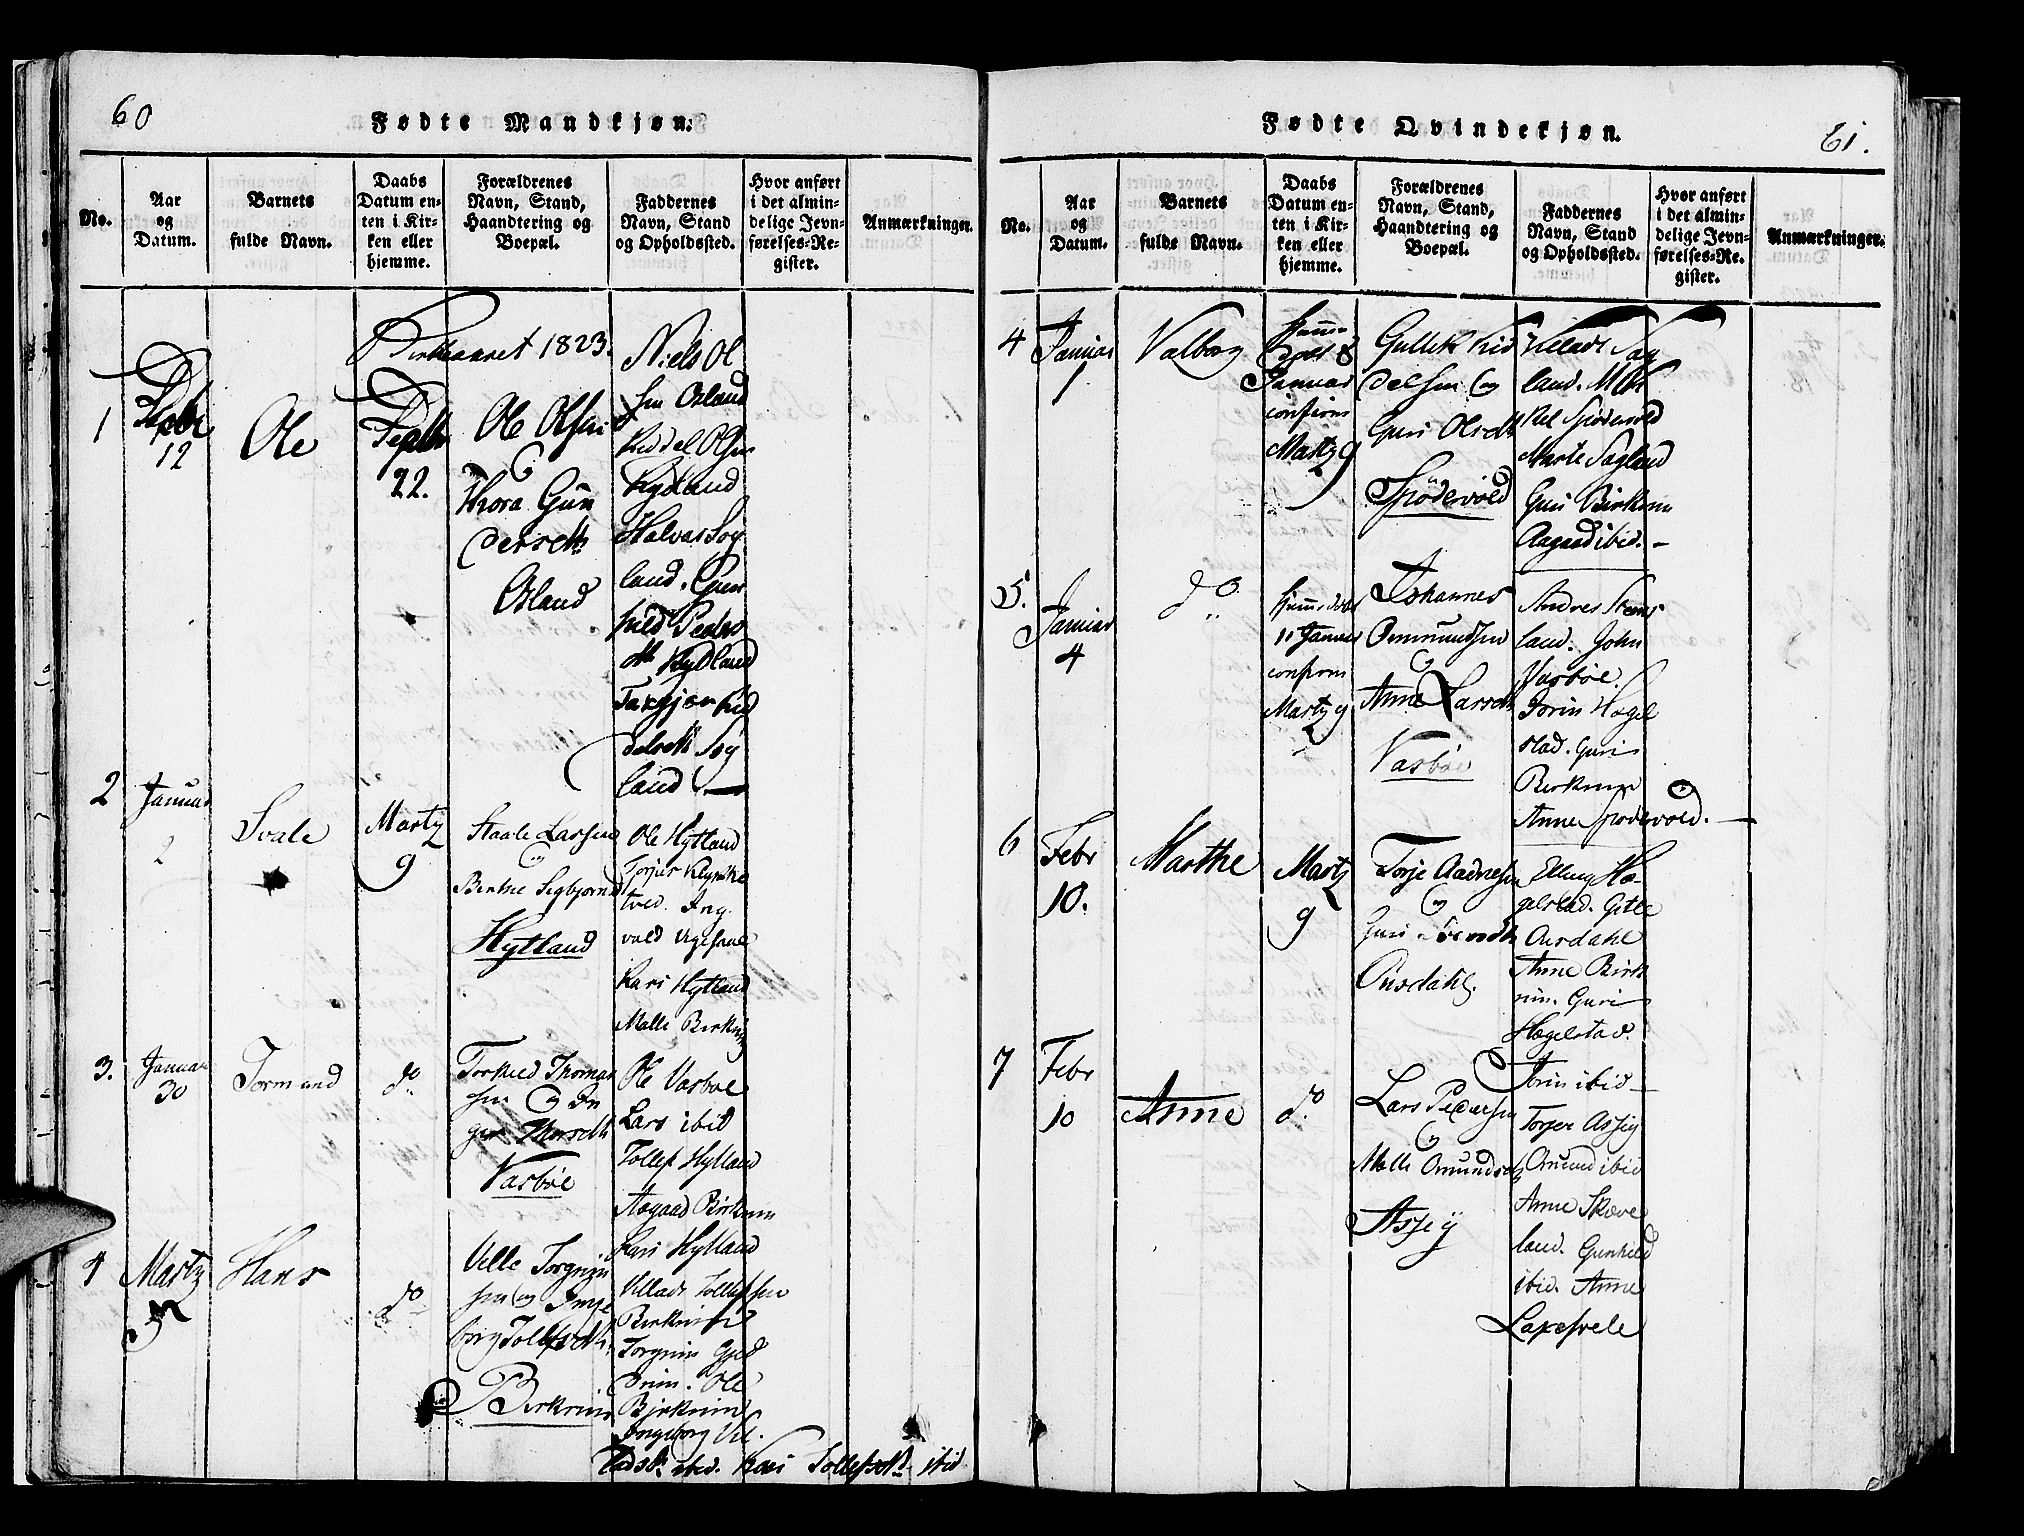 60
Fødte Mandkjøn.
No.
Aar
og
Datum.
Barnets
fulde Navn.
Daabs
Datum en-
ten i Kir-
ken eller
hjemme.
Forældrenes
Navn, Stand,
Haandtering og
Boepæl.
Faddernes
Navn, Stand
og Opholdssted.
Hvor anført
i det almin-
delige Jevn-
førelses-Re-
gister.
Anmærkninger.
Kirkeaaret 1823.
1
Septbr
12
Ole
Septbr
22.
Ole Olsen
og
Thora Gun
dersdtr
Osland
Niels Ol
sen Osland
Keddel Olsen
Hylland
Halvar Søy
land. Gun
hild Peders
dtr Hylland
Taxgjer Kid
delsdtr Søy
land
2
Januar
2
Svale
Martz
9
Staale Larsen
og
Berthe Segbjorns
Hytland
Ole Hytland
Torjus
tved. Ing.
vald
Kari Hytland
Malle Birkrim
3.
Januar
30
Tormund
do
Torkild Thomas
sen og In
ger Thorsdtr
Vasbøe
Ole Vasboe
Lars ibid
Tollef Hylland
Aagaad Birkrem
Kari Hylland
4
Martz
Hans
do
Ville Torgrim
sen og Inge
borg Tollefsdtr.
Birkrim
Villads Tollefsen
Birkrim
Torgrim Gjed
rim. Ole
Bjrkrim
Ingeborg Vil.
ladsdr. ibid. Kari Tollefsdtr ibid
61.
Fødte Qvindekjøn.
No.
Aar
og
Datum.
Barnets
fulde Navn.
Daabs
Datum en-
ten i Kir-
ken eller
hjemme.
Forældrenes
Navn, Stand,
Haandtering og
Boepæl.
Faddernes
Navn, Stand
og Opholdssted.
Hvor anført
i det almin-
delige Jevn-
førelses-Re-
gister.
Anmærkninger.
4
Januar
1
Valborg
hjemme
døbt 8
Januar
confirm
Martz 9
Gullik Kid
delsen og
Guri Olsdtr
Spödevold
Villads Søy
land. Mik
kel Spödevold
Marte Søyland
Guri Birkrem
Aagaad ibid.
5.
Januar
4
do
hjemme døbt
11 Januar
confirm
Martz 9
Johannes
Ommundsen
og
Anne Larsdtr
Vasböe
Andres Stens
land. John
Vasböe.
Jorin Hægel
stad. Guri
Birkrim
Anne Spödevold.
6
Febr
10.
Marthe
Martz
9
Torje Aadnesen
og
Guri
Ousdahl.
Elling Hæ-
gelstad. Gitle
Ousdahl
Anne Birk
rim. Guri
Hægelstad.
Jorin ibid
7
Febr
10
Anne
do
Lars Pedersen
og
Malli Omundsdtr
Assiey
Torger Assiey
Omund ibid
Anne Skæve
land. Gunhild
ibid. Anne
Laxesvele